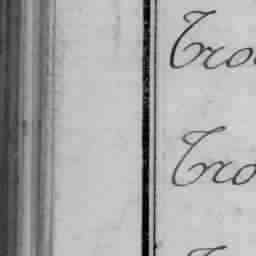 Tro
Tro